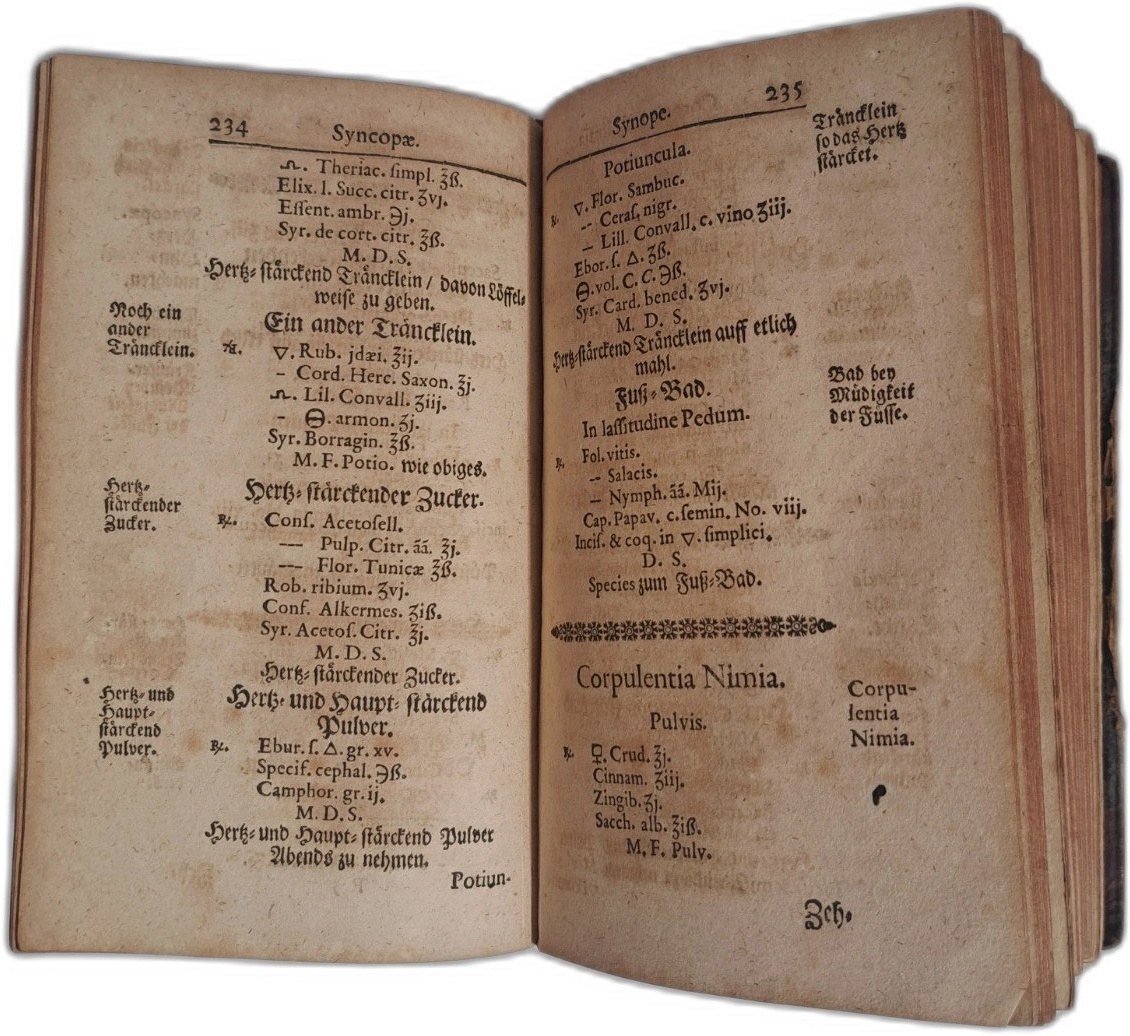 234 Syncopæ.
ᰍ. Theriac. ſimpl. ℥ß.
Elix. l. Succ. citr. ʒvj.
Eſſent. ambr. ℈j.
Syr. de cort. citr. ℥ß.
M. D. S.
Hertz⸗ ſtärckend Träncklein / davon Löffel⸗
weiſe zu geben.
Noch ein
ander
Träncklein.
Ein ander Träncklein.
℞. ▽. Rub. jdæi. ℥ij.
– Cord. Herc. Saxon. ℥j.
Lil. Convall. ʒiij.
– armon. ʒj.
Syr. Borragin. ℥ß.
M. F. Potio. wie obiges.
Hertz⸗
ſtärckender
Zucker.
Hertz⸗ ſtärckender Zucker.
℞. Conſ. Acetoſell.
--- Pulp. Citr. āā. ℥j.
--- Flor. Tunicæ ℥ß.
Rob. ribium. ʒvj.
Conf. Alkermes. ʒiß.
Syr. Acetoſ. Citr. ℥j.
M. D. S.
Hertz⸗ ſtärckender Zucker.
Hertz⸗ und
Haupt⸗
ſtärckend
Pulver.
Hertz⸗ und Haupt⸗ ſtärckend
Pulver.
℞. Ebur. ſ. △. gr. xv.
Specif. cephal. ℈ß.
Camphor. gr. ij.
M. D. S.
Hertz⸗ und Haupt⸗ ſtärckend Pulver
Abends zu nehmen.
Potiun-
Synope. 235
Träncklein
ſo das Hertz
ſtärcket.
Potiuncula.
℞. ▽. Flor. Sambuc.
-- Ceraſ. nigr.
– Lill. Convall. c. vino ʒiij.
Ebor. ſ. △. ʒß.
vol. C. C. ℈ß.
Syr. Card. bened. ʒvj.
M. D. S.
Hertz⸗ſtärckend Träncklein auff etlich
mahl.
Bad bey
Müdigkeit
der Füſſe.
Fuß⸗Bad.
In laſſitudine Pedum.
℞. Fol. vitis.
-- Salacis.
– Nymph. āā. Mij.
Cap. Papav. c. ſemin. No. viij.
Inciſ. & coq. in ▽. ſimplici.
D. S.
Species zum Fuß⸗Bad.
Corpulentia Nimia.
Corpu-
lentia
Nimia.
Pulvis.
℞. ♀. Crud. ℥j.
Cinnam. ʒiij.
Zingib. ʒj.
Sacch. alb. ℥iß.
M. F. Pulv.
Zeh⸗